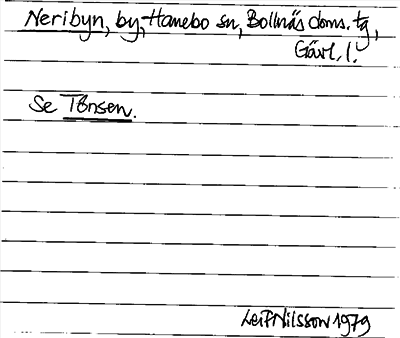 Neribyn, by, Hanebo sn, Bollnäs doms. tg,
Gävl. l.
Se Tönsen.
Leif Nilsson 1979